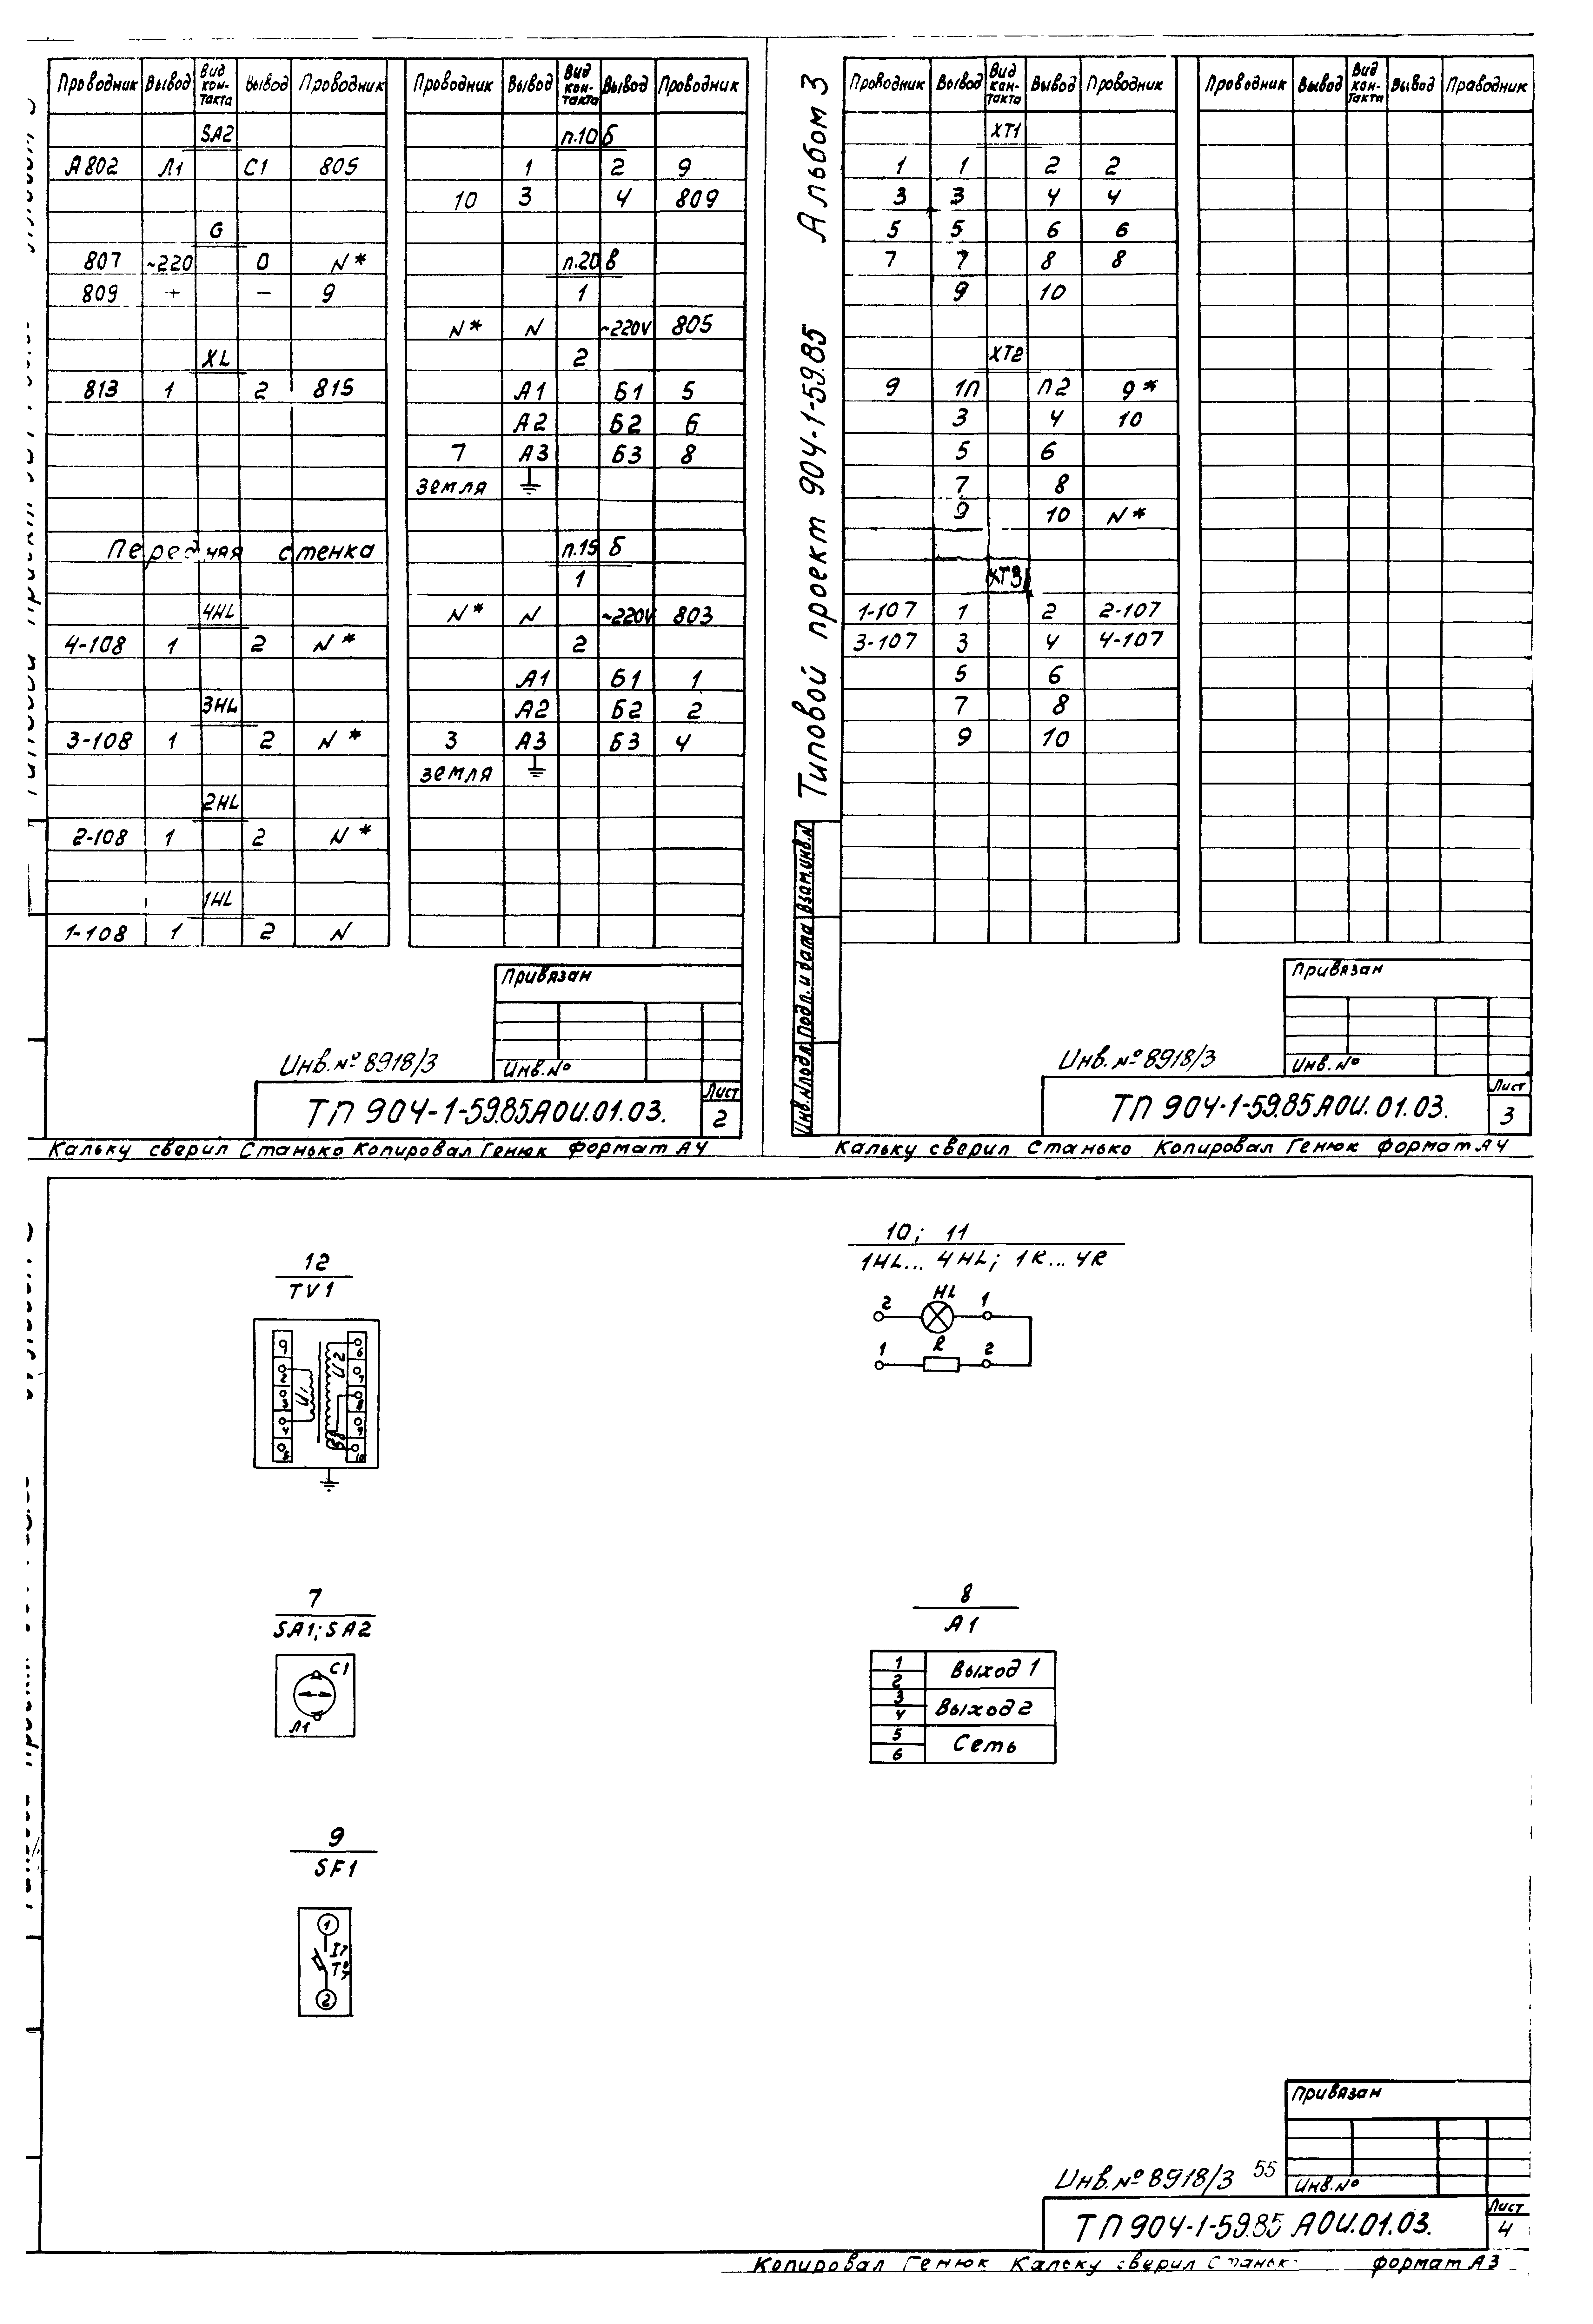 Проводник Вывод Вид кон-такта Вывод Проводник
SA2
А802 Л1 С1 805
G
807 ~220 0 N*
809 + − 9
XL
813 1 2 815
Передняя стенка
4HL
4-108 1 2 N*
3HL
3-108 1 2 N*
2HL
2-108 1 2 N*
1HL
1-108 1 2 N
Проводник Вывод Вид кон-такта Вывод Проводник
п.10б
1 2 9
10 3 4 809
п.20в
1
N* N ~220V 805
2
А1 Б1 5
А2 Б2 6
7 А3 Б3 8
земля
п.15б
1
N* N ~220V 803
2
А1 Б1 1
А2 Б2 2
3 А3 Б3 4
земля
Привязан
Инв.№
Инв.№8918/3
ТП 904-1-59.85АОИ.01.03.
Лист
2
Кальку сверил Станько Копировал Генюк формат А4
Типовой проект 904-1-59.85 Альбом 3
Проводник Вывод Вид кон-такта Вывод Проводник
XT1
1 1 2 2
3 3 4 4
5 5 6 6
7 7 8 8
9 10
XT2
9 1П П2 9*
3 4 10
5 6
7 8
9 10 N*
XT3
1-107 1 2 2-107
3-107 3 4 4-107
5 6
7 8
9 10
Проводник Вывод Вид кон-такта Вывод Проводник
Инв.№подл. Подп. и дата Взам.инв.№
Привязан
Инв.№
Инв.№8918/3
ТП 904-1-59.85 АОИ.01.03.
Лист
3
Кальку сверил Станько Копировал Генюк формат А4
12
TV1
1
2
3
4
5
U1
U2
6
7
8
9
10
10; 11
1HL... 4HL; 1R... 4R
2 HL 1
1 R 2
7
SA1; SA2
С1
Л1
8
А1
1
2
Выход 1
3
4
Выход 2
5
6
Сеть
9
SF1
1
I>
2
Привязан
Инв.№
Инв.№8918/3 55
ТП 904-1-59.85 АОИ.01.03.
Лист
4
Копировал Генюк Кальку сверил формат А3